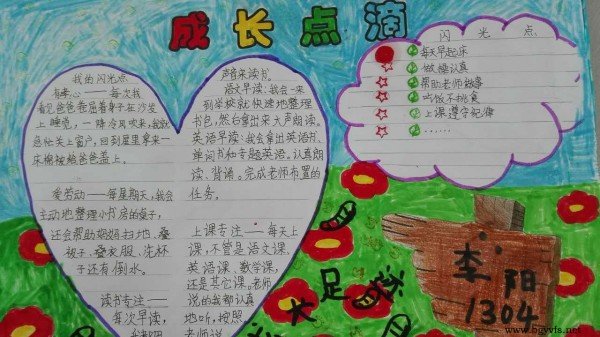 成长点滴
我的闪光点
有孝心——每次我
看见爸爸卷屈着身子在沙发
上睡觉，一阵冷风吹来，我就
急忙关上窗户，回到屋里拿来一
床棉被给爸爸盖上。
爱劳动——每星期天，我会
主动地整理小书房的桌子，
还会帮助妈妈扫地、叠
被子、叠衣服、洗杯
子还有倒水。
读书专注——
每次早读，
声音来读书。
语文早读：我会一来
到学校就快速地整理
书包，然后拿出来大声朗读。
英语早读：我会拿出英语书、
单词书和专题英语。认真朗
读、背诵。完成老师布置的
任务。
上课专注——每天上
课，不管是语文课、
英语课、数学课，
还是其它课。老师
说的我都认真
地听，按照
老师说
闪光点
每天早起床
做操认真
帮助老师做事
吃饭不挑食
上课遵守纪律
……
大足
李阳
1304
www.bgyyfs.net